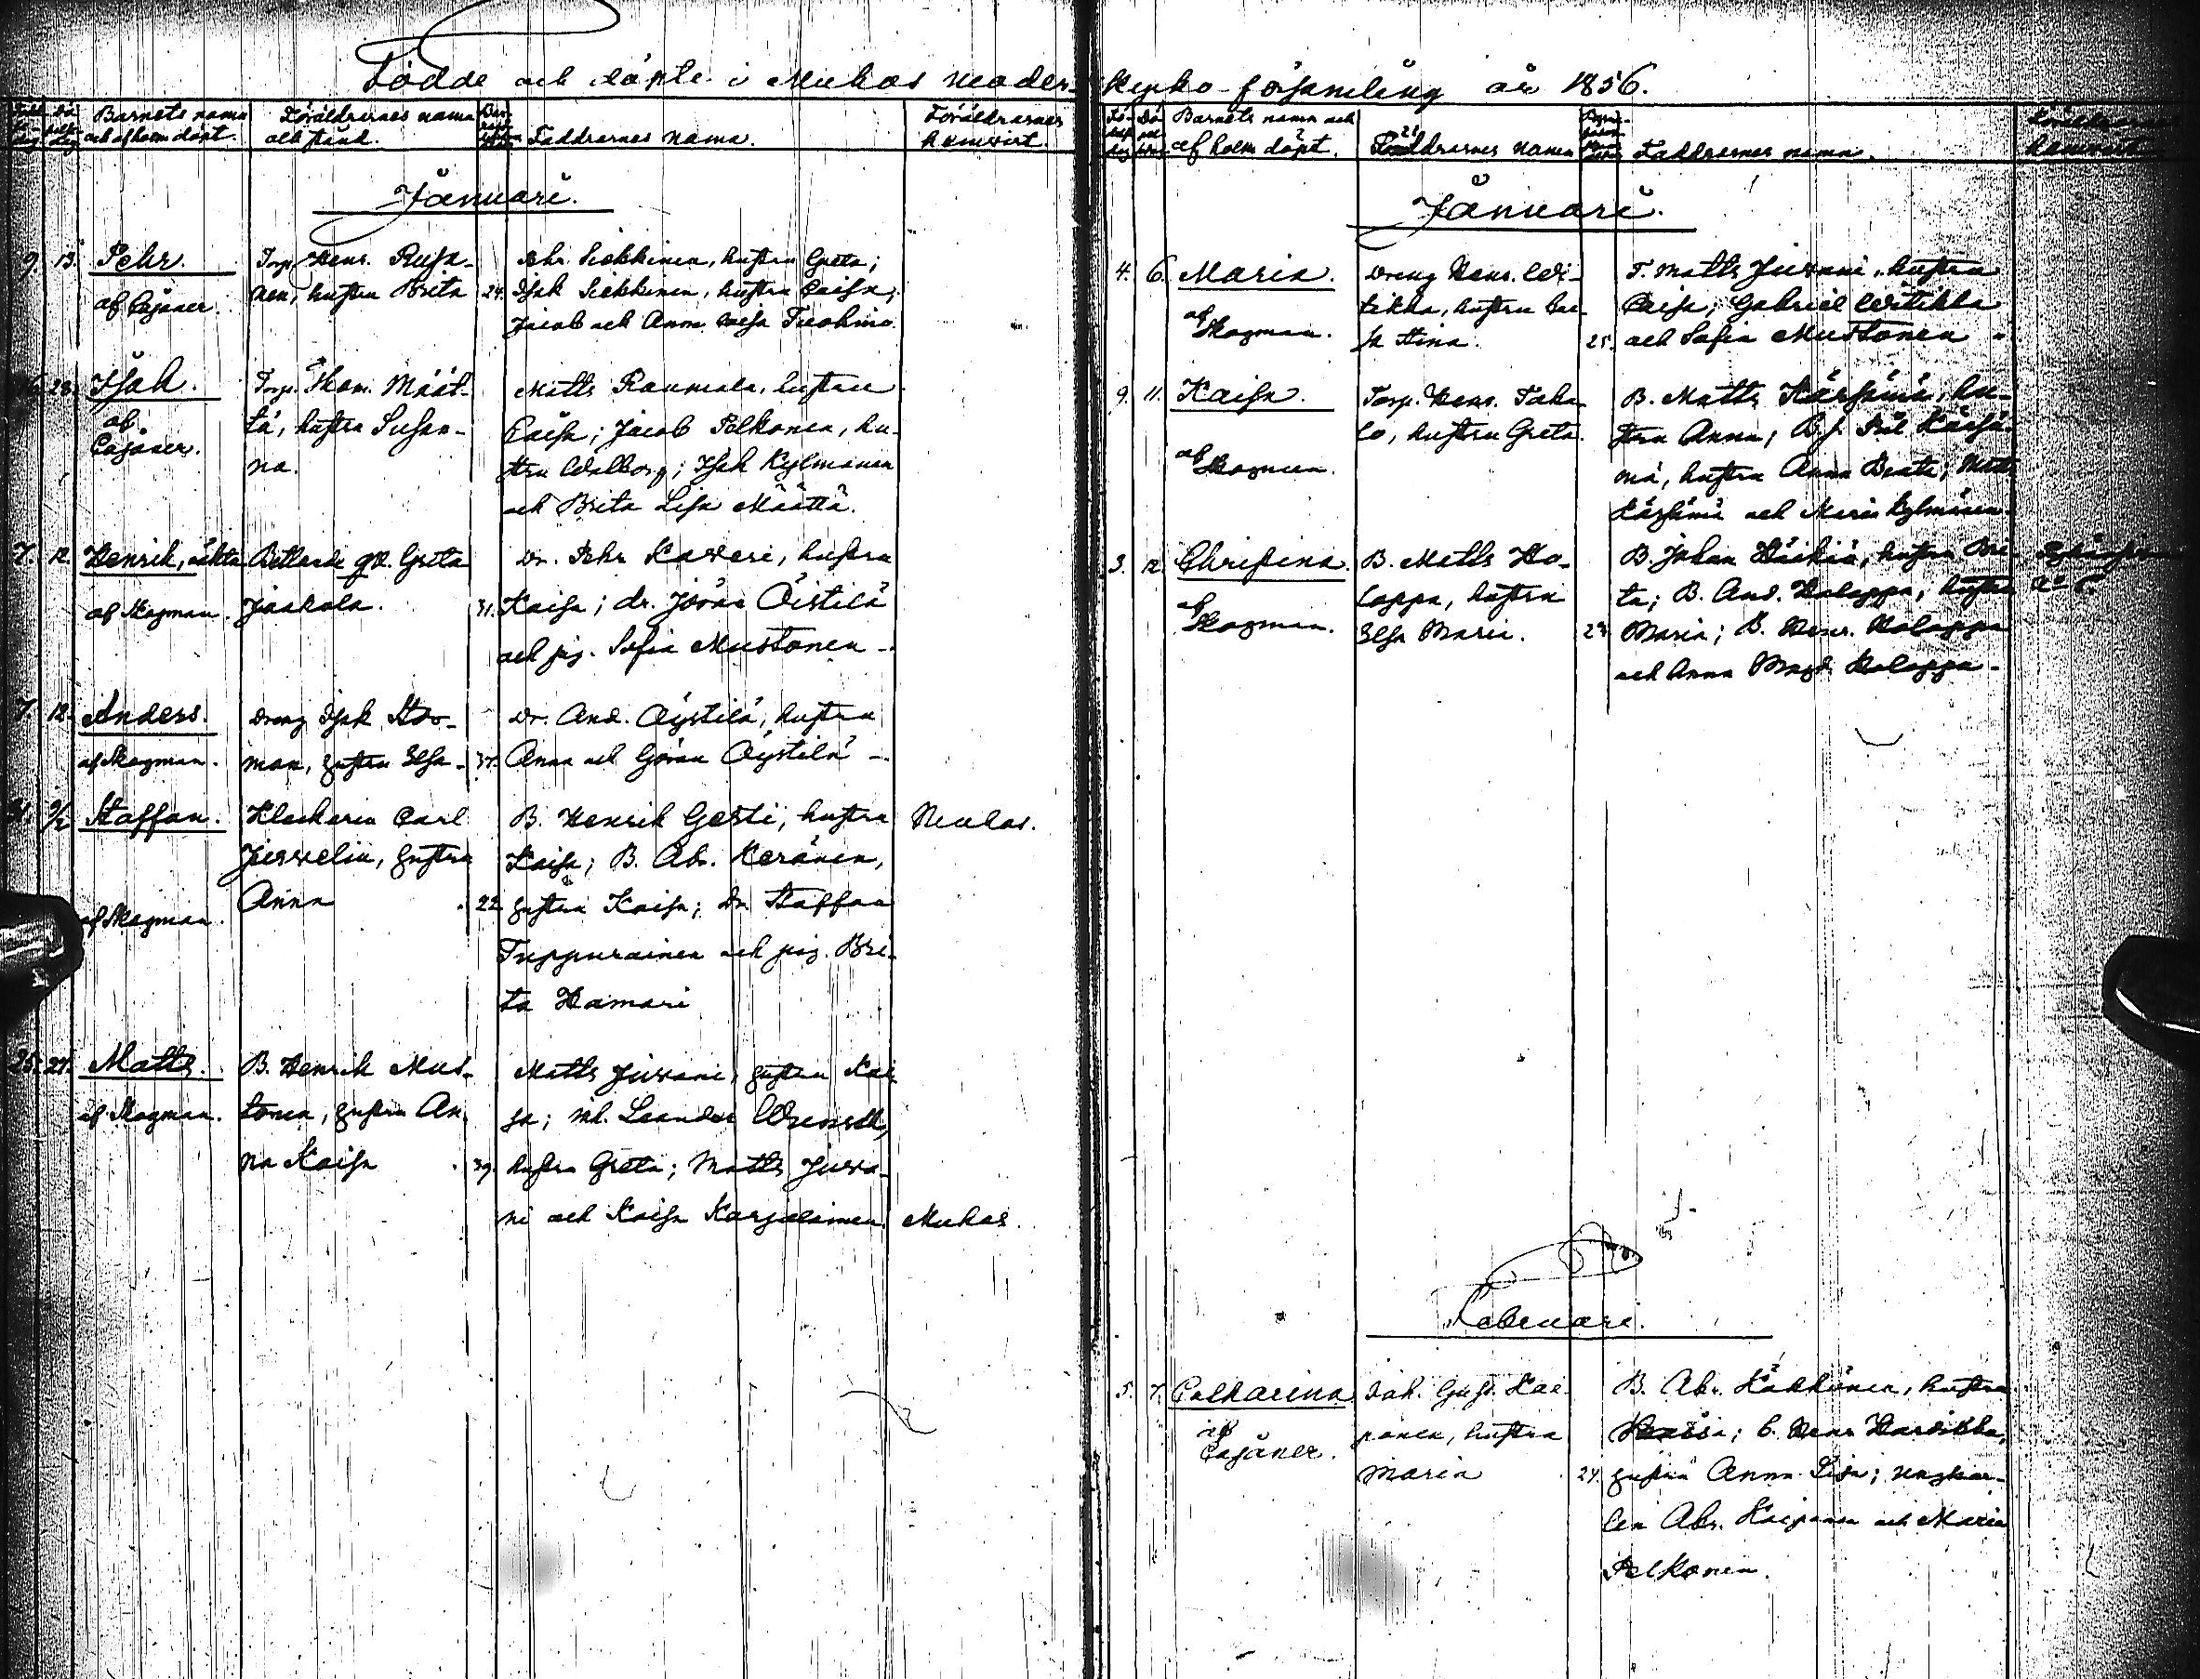 Födde och döpte i Muhos Moder-
Kyrko-församling år 1856.
Barnets namn
och af hvem döpt.
Föräldrarnes namn
och stånd.
Faddrarnes namn.
Föräldrarnes
hemvist.
Januari.
9. 13. Pehr.
af Cajaner.
Torp. Henr. Rusa-
nen, hustru Brita
24.
Pehr Siekkinen, hustru Greta;
Isak Siekkinen, hustru Caisa;
Jacob och Anna Caisa Tuohino
28. Isak.
af
Cajaner.
Torp. Thom. Määt-
tä, hustru Susan-
na.
Matts Raumala, hustru
Caisa; Jacob Pelkonen, hu-
stru Walborg; Isak Kylmänen
och Brita Lisa Määttä.
7. 12. Henrik, oäkta
af Skogman.
Bettlande qv. Greta
Jaakola.
31.
Dr. Pehr Kaveri, hustru
Kaisa; dr. Jöran Öistilä
och pig. Sofia Mustonen -
7. 12. Anders.
af Skogman.
Dreng Isak Sto-
man, hustru Elsa -
37.
Dr. And. Öystilä, hustru
Anna och Göran Öystilä -
31. 9/2 Staffan.
af Skogman.
Klockaren Carl
Juvelin, hustru
Anna
22
B. Henrik Gesti, hustru
Kaisa; B. Ab. Keränen,
hustru Kaisa; Dr. Staffan
Tuppurainen och pig. Bri-
ta Hamari
Muhos.
25. 27. Matts.
af Skogman.
B. Henrik Mus-
tonen, hustru An-
na Kaisa
39.
Matts Juvani, hustru Kai-
sa; Leander
hustru Greta; Matts Juva-
ni och Kaisa Karjalainen
Muhos.
Barnets namn och
af hvem döpt.
Föräldrarnes namn
Faddrarnes namn.
Föräldrarnes
hemvist
Januari.
4. 6. Maria.
af
Skogman.
Dreng Henr. Wi-
tikka, hustru Cai-
sa Stina.
25.
T. Matts Juvani, hustru
Caisa; Gabriel Witikka
och Sofia Mustonen
9. 11. Kaisa.
af
Skogman.
Torp. Henr. Taka-
lo, hustru Greta.
B. Matts Kärsämä, hu-
stru Anna; Kärsä-
mä, hustru Anna Beata; Matts
Kärsämä och Maria Kylmänen
3. 12. Christina.
af
Skogman.
B. Matts Ho-
lappa, hustru
Elsa Maria.
B. Johan Häikiö, hustru Bri-
ta; B. And. Holappa, hustru
Maria; B. Henr. Holappa
och Anna Magd. Holappa -
Februari.
5. 7. Catharina
af
Cajaner.
Inh. Gust. Kai-
panen, hustru
Maria
24.
B. Abr. Käkkönen, hustru
; B. Henr. Karvikka,
hustru Anna Lisa; ungkar-
len Abr. Kaipanen och Maria
Pelkonen.